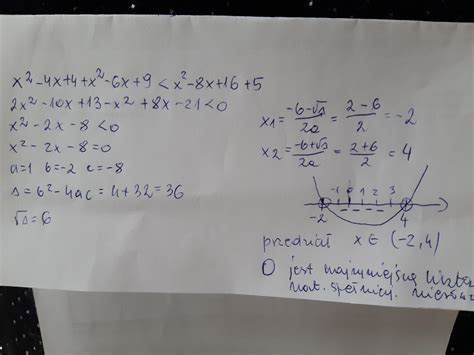 x²-4x+4+x²-6x+9 < x²-8x+16+5
2x²-10x+13-x²+8x-21<0
x²-2x-8<0
x²-2x-8=0
a=1 b=-2 c=-8
Δ=b²-4ac=4+32=36
√Δ=6
x1=(-b-√Δ)/2a=(2-6)/2=-2
x2=(-b+√Δ)/2a=(2+6)/2=4
-1 0 1 2 3
-2 4
przedział x∈(-2,4)
0 jest najmniejszą
nat. spełniaj.